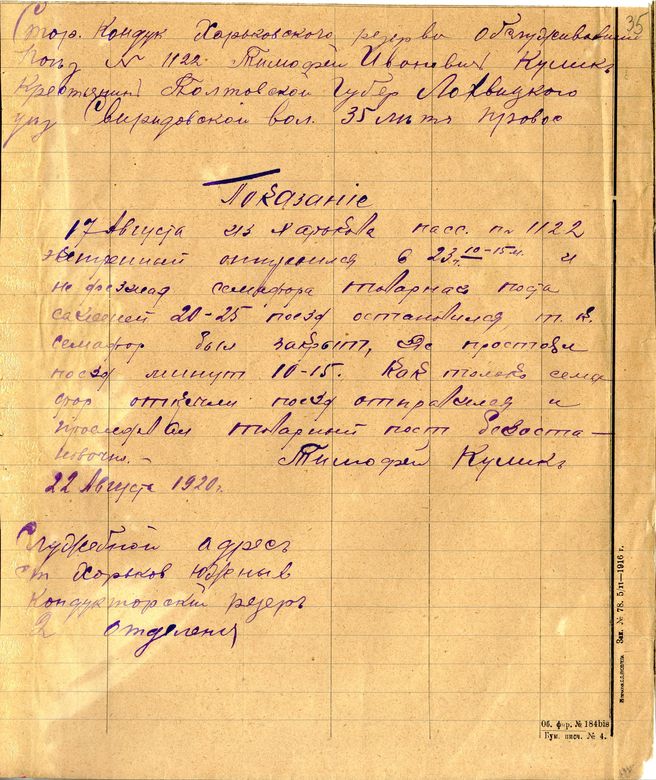 35
Стор. Кондук Харьковского резерва обслуживавший
поезд № 1122 Тимофей Иванович Куликъ
Крестянин Полтавской Губер Лохвицкого
уиз Свиридовской вол. 35 литъ провос
Показаніе
17 Августа из Харькова пасс. п. 1122
отправился в 23 ч. 10-15 м. и
не доезжая семафора товарнаго поста
сажений 20-25 поезд остановился т. к.
семафор был закрыт, где простоял
поезд минут 10-15. Как только сема
фор открыли поезд отправился и
проследовал товарный пост безоста-
новочно. – Тимофей Куликъ
22 Августа 1920 г.
Служебной адресъ
ст Харьков Южныв
Кондукторский резеръ
2 отделеня
Зак. № 78. 5/II—1916 г.
Об. фор. № 184bis
Бум. писч. № 4.